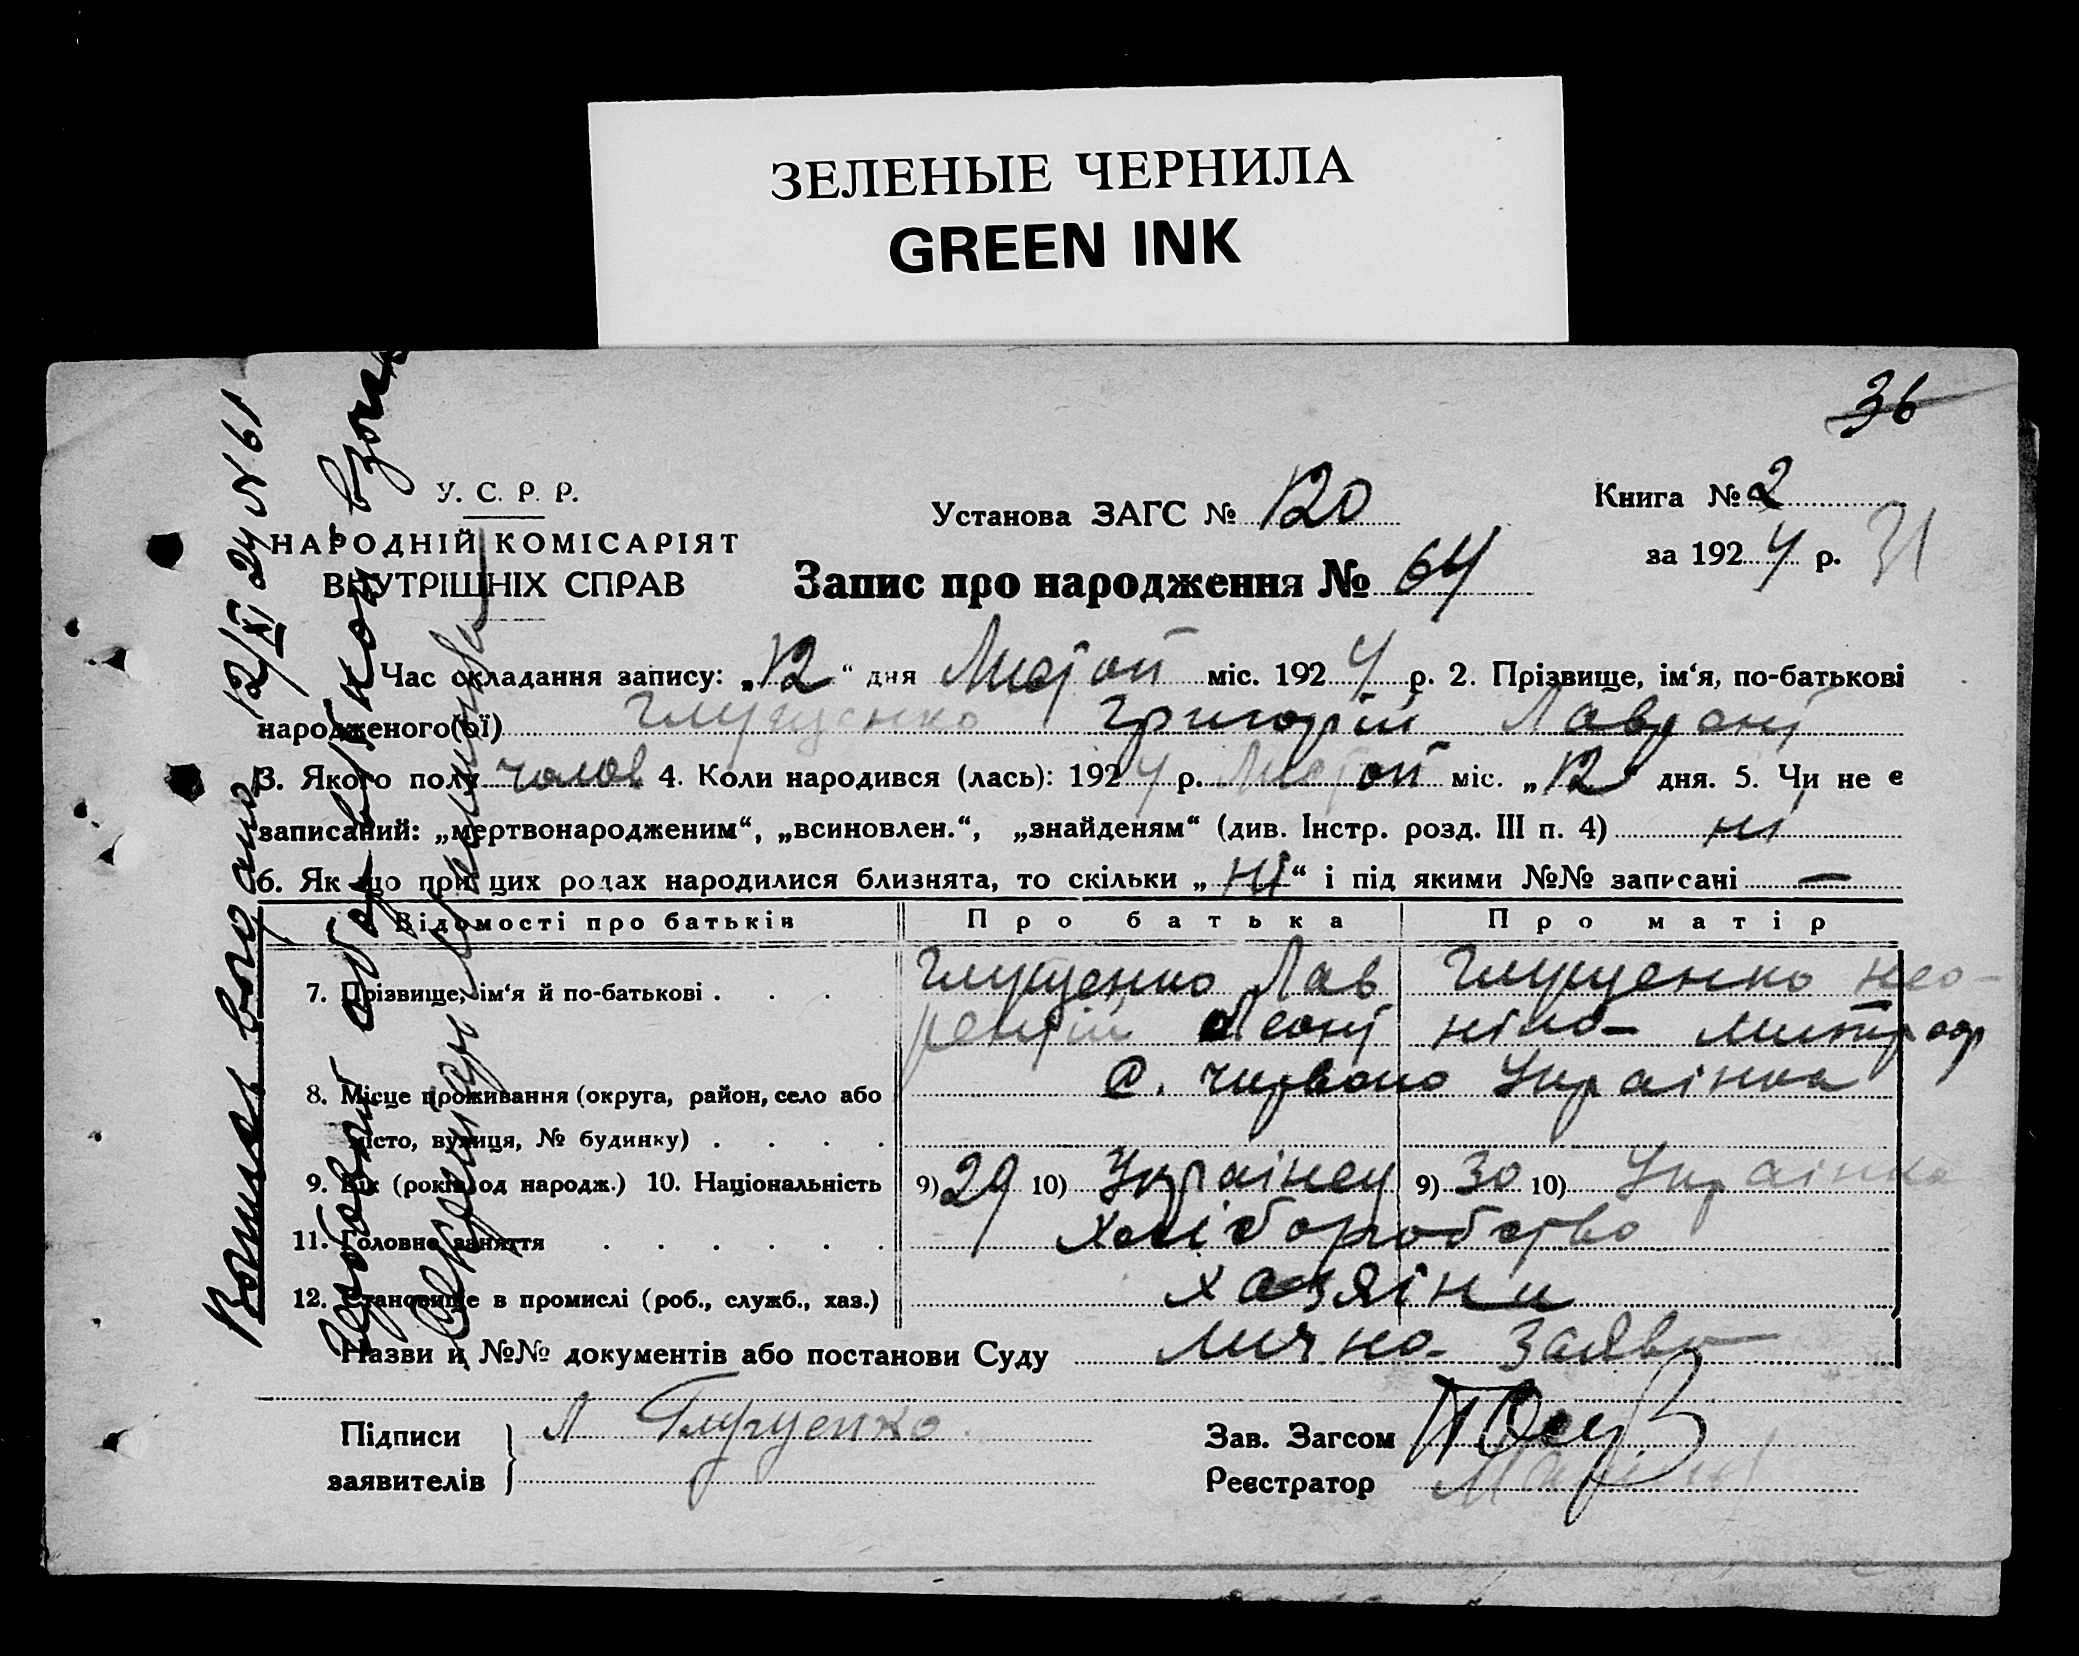 ЗЕЛЕНЫЕ ЧЕРНИЛА
GREEN INK
36
У. С. Р. Р.
НАРОДНІЙ КОМІСАРІЯТ
ВНУТРІШНІХ СПРАВ
Установа ЗАГС № 120
Запис про народження № 64
Книга № 2
за 1924 р. 31
Час складання запису: „12“ дня Листоп міс. 1924 р. 2. Прізвище, ім‘я, по-батькові
народженого(ої) Глущенко Григорій Лаврент
3. Якого полу чолов 4. Коли народився (лась): 1924 р. Листоп міс. „12“ дня. 5. Чи не є
записаний: „мертвонародженим“, „всиновлен.“, „знайденям“ (див. Інстр. розд. III п. 4) ні
6. Як що при цих родах народилися близнята, то скільки „ні“ і під якими №№ записані —
Відомості про батьків Про батька Про матір
7. Прізвище, ім‘я й по-батькові . . . . Глущенко Лав Глущенко Нео-
рентій Леонт ніла Митроф
8. Місце проживання (округа, район, село або с. Червоно Українка
місто, вулиця, № будинку) . . . .
9. Вік (років од народж.) 10. Національність 9) 29 10) Українец 9) 30 10) Українка
11. Головне заняття . . . . . . Хліборобство
12. Становище в промислі (роб., служб., хаз.) хазяіни
Назви и №№ документів або постанови Суду лична заява
Підписи
заявителів
Л Глущенко
Зав. Загсом
Реєстратор
12/XI 24 N 61